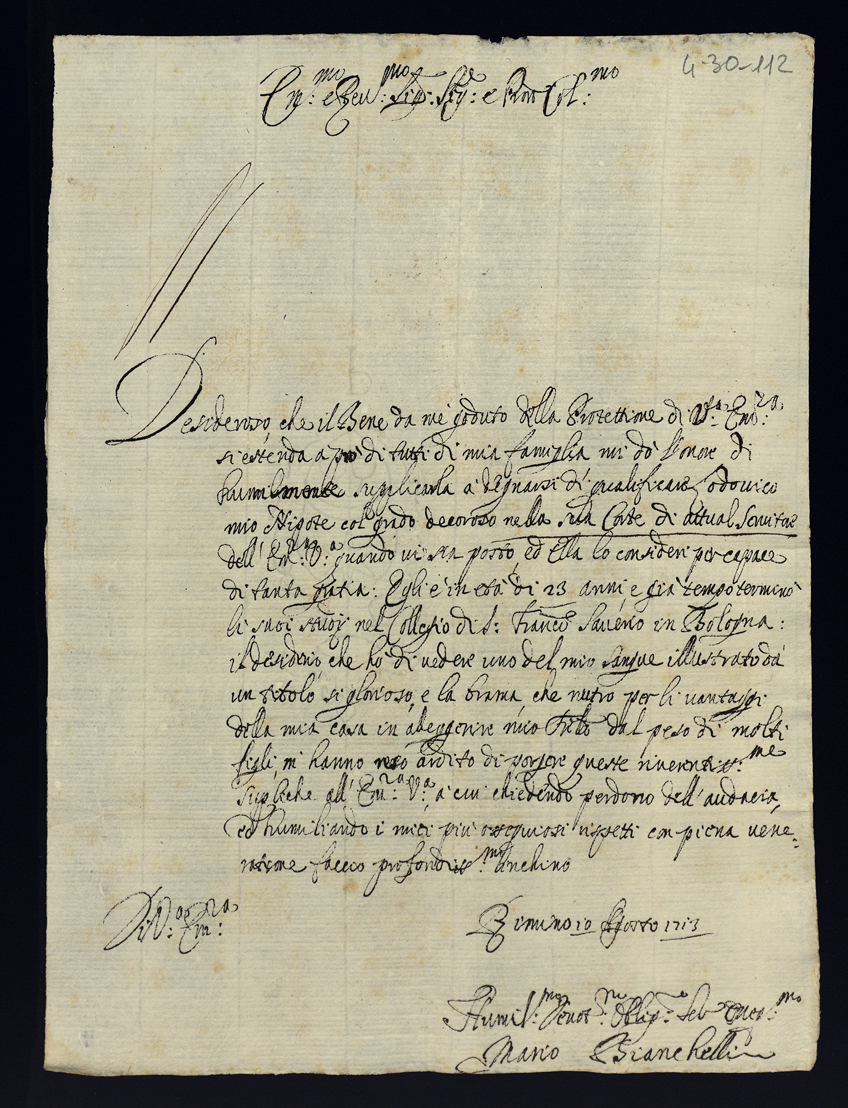 4-30-112
Em:mo e Reu:mo Sig: Sig: e Pron Col:mo
Desideroso, che il Bene da me goduto della Protettione di V:a Em:za
si estenda a prò di tutti di mia famiglia mi dò l'onore di
humilmente supplicarla a degnarsi di qualificare Lodovico
mio Nipote col grado decoroso nella sua Corte di attual Servitore
dell'Em:za V:a quando vi sia posto, ed Ella lo consideri per capace
di tanta gratia: Egli è in età di 23 anni, e già tempo terminò
li suoi studij nel Collegio di S: Franco Saverio in Bologna:
il desiderio, che hò di vedere uno del mio sangue illustrato da
un titolo si glorioso, e la brama, che nutro per li vantaggi
della mia casa in aleggerire mio Frãllo dal peso di molti
figli, mi hanno reso ardito di porgere queste riverentiss:me
Supliche all'Em:za V:a a cui chiedendo perdono dell'audacia,
ed humiliando i miei più ossequiosi rispetti con piena vene=
ratione faccio profondiss:mo inchino
Di V:a Em:za
Rimino 10 Agosto 1713
Humil:mo Devot:mo Oblig:mo Ser
Mario Bianchelli